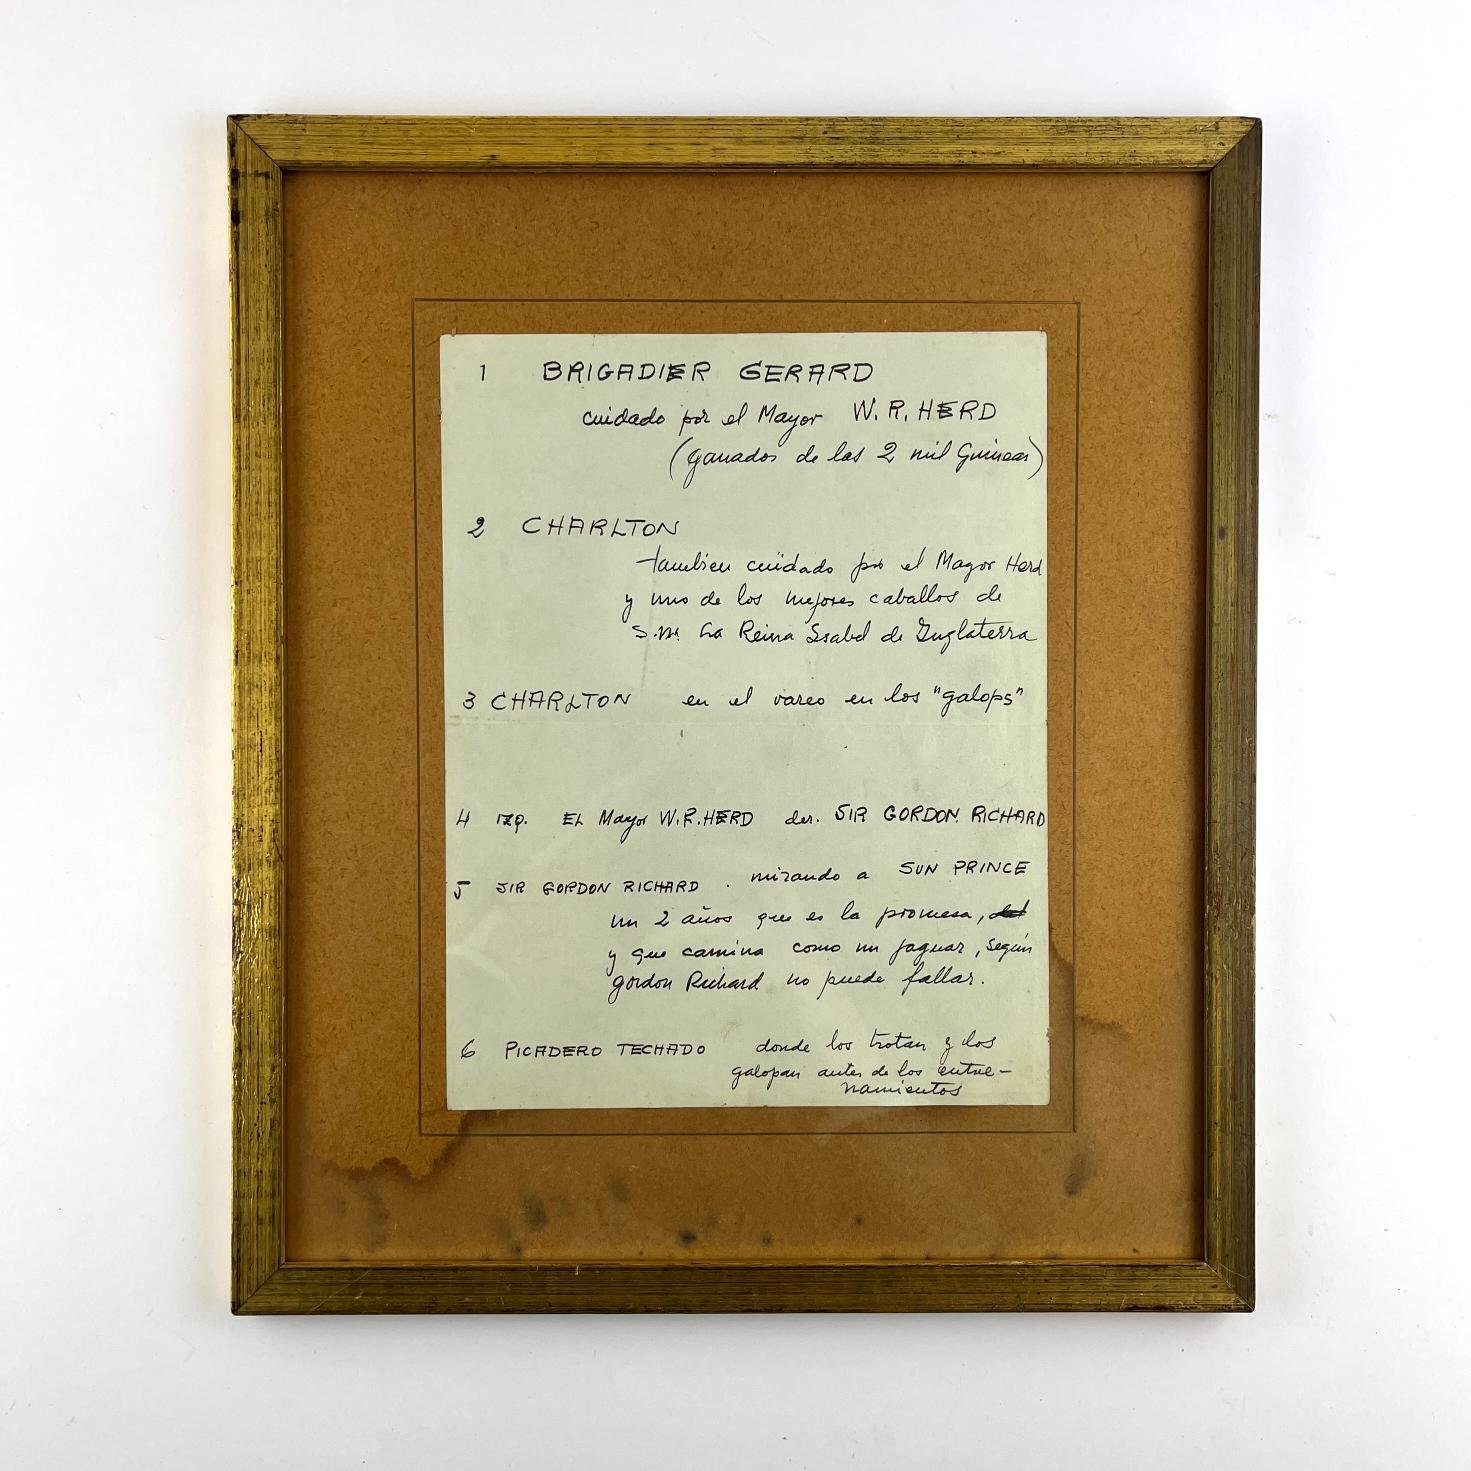 1 BRIGADIER GERARD
cuidado por el Mayor W.R. HERD
(ganador de las 2 mil Guineas)
2 CHARLTON
tambien cuidado por el Mayor Herd
y uno de los mejores caballos de
S.M. La Reina Isabel de Inglaterra
3 CHARLTON en el vareo en los "galops"
4 izq. EL Mayor W.R. HERD der. SIR GORDON RICHARD
5 SIR GORDON RICHARD . mirando a SUN PRINCE
un 2 años que es la promesa,
y que camina como un jaguar, según
Gordon Richard no puede fallar.
6 PICADERO TECHADO donde los trotan y los
galopan antes de los entre-
namientos